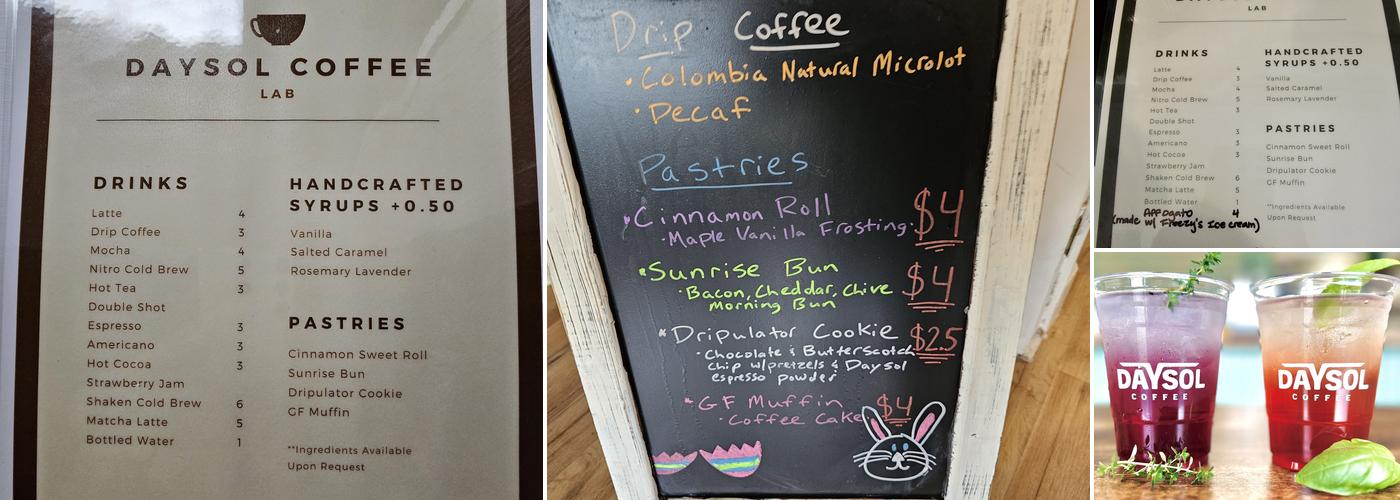 DAYSOL COFFEE
LAB
DRINKS
Latte 4
Drip Coffee 3
Mocha 4
Nitro Cold Brew 5
Hot Tea 3
Double Shot
Espresso 3
Americano 3
Hot Cocoa 3
Strawberry Jam
Shaken Cold Brew 6
Matcha Latte 5
Bottled Water 1
HANDCRAFTED
SYRUPS +0.50
Vanilla
Salted Caramel
Rosemary Lavender
PASTRIES
Cinnamon Sweet Roll
Sunrise Bun
Dripulator Cookie
GF Muffin
**Ingredients Available
Upon Request
Drip Coffee
• Colombia Natural Microlot
• Decaf
Pastries
Cinnamon Roll $4
• Maple Vanilla Frosting
Sunrise Bun $4
• Bacon, Cheddar, Chive
Morning Bun
Dripulator Cookie $2.5
• Chocolate & Butterscotch
chip w/pretzels & Daysol
espresso powder
GF Muffin $4
• Coffee Cake
LAB
DRINKS
Latte 4
Drip Coffee 3
Mocha 4
Nitro Cold Brew 5
Hot Tea 3
Double Shot
Espresso 3
Americano 3
Hot Cocoa 3
Strawberry Jam
Shaken Cold Brew 6
Matcha Latte 5
Bottled Water 1
Affogato 4
(made w/ Freezy's Ice cream)
HANDCRAFTED
SYRUPS +0.50
Vanilla
Salted Caramel
Rosemary Lavender
PASTRIES
Cinnamon Sweet Roll
Sunrise Bun
Dripulator Cookie
GF Muffin
**Ingredients Available
Upon Request
DAYSOL
COFFEE
DAYSOL
COFFEE